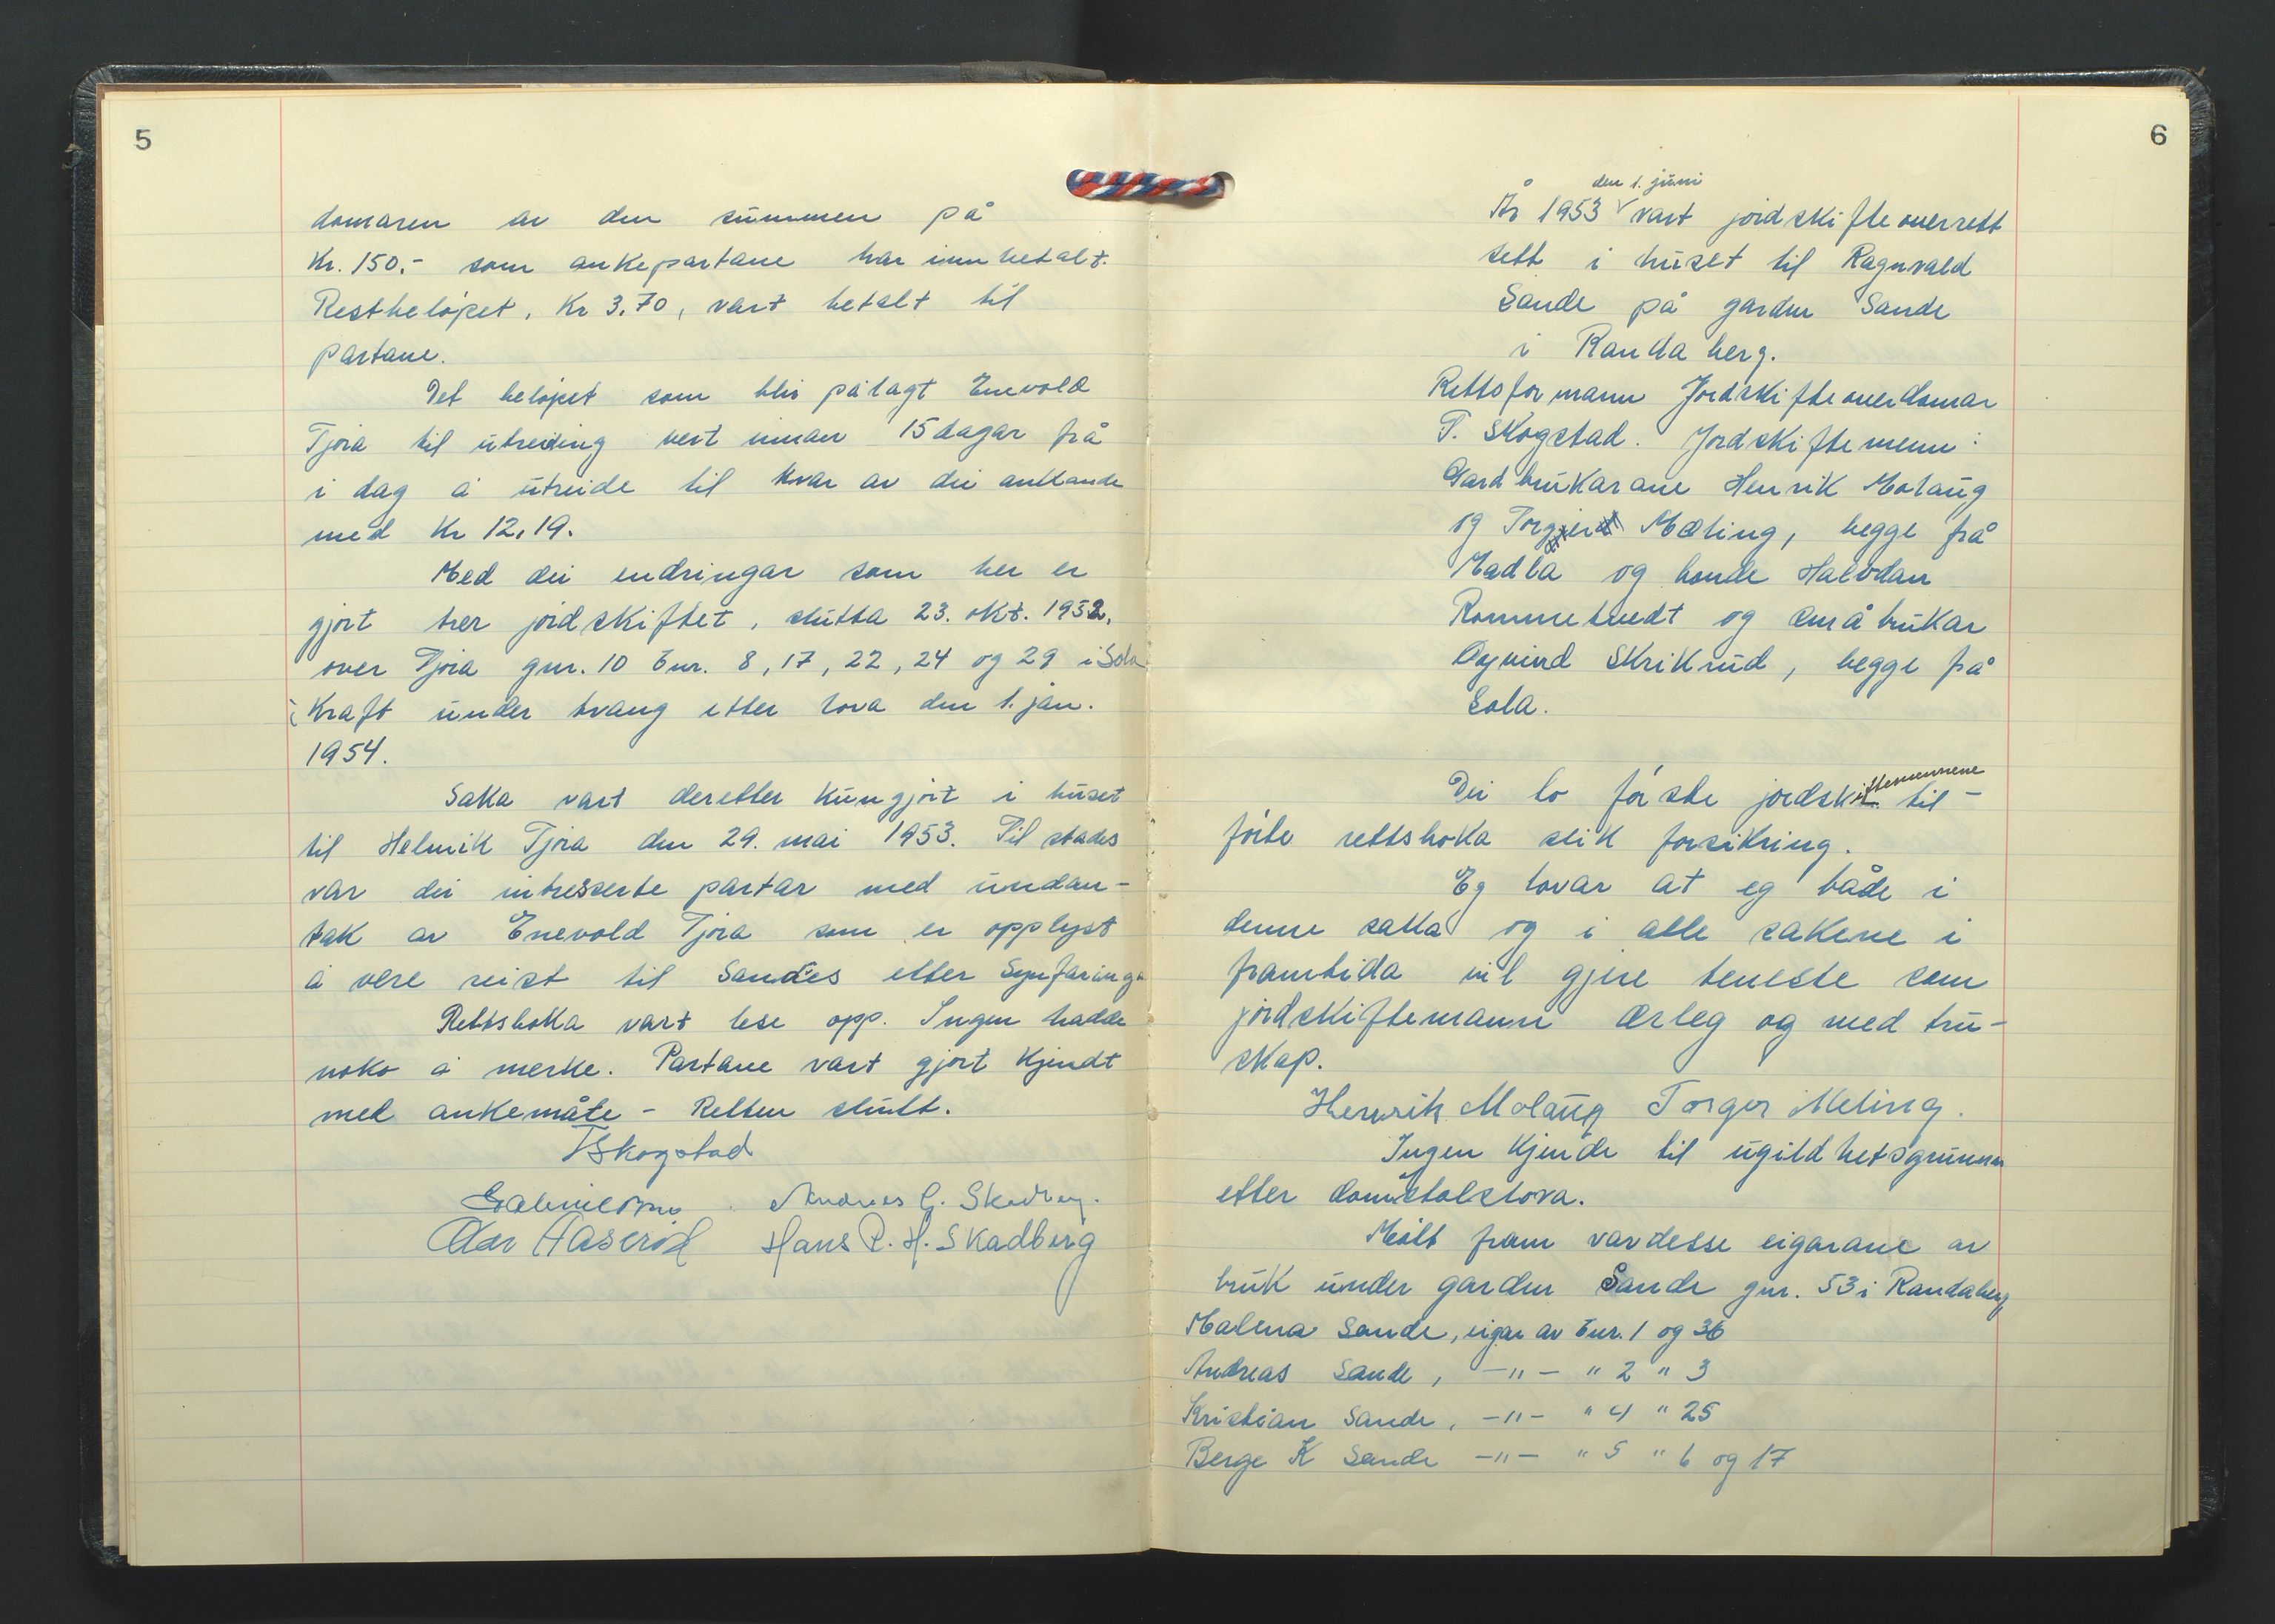 5
domaren av den summen på
Kr. 150.- som ankepartane har innbetalt.
Restbeløpet, Kr 3,70, vart betalt til
partane.
Det beløpet som blir pålagt Enevold
Tjora til utreiding vert innan 15 dagar frå
i dag å utreide til kvar av dei ankande
med Kr 12,19.
Med dei endringar som her er
gjort trer jordskiftet, slutta 23. okt. 1952,
over Tjora gnr. 10 bnr. 8, 17, 22, 24 og 29 i Sola
i Kraft under tvang etter lova den 1. jan.
1954.
Saka vart deretter kungjort i huset
til Helmik Tjora den 29. mai 1953. Til stades
var dei intresserte partar med undan-
tak av Enevold Tjora som er opplyst
å vere reist til Sandnes etter Synfaringa
Rettsboka vart lese opp. Ingen hadde
noko å merke. Partane vart gjort kjendt
med ankemåte - Retten slutt.
T Skogstad
Andreas G. Skadberg.
Hans R. H. Skadberg
6
den 1. juni
År 1953 vart jordskifteoverrett
sett i huset til Ragnvald
Sande på garden Sande
i Randaberg.
Rettsformann Jordskifteoverdomar
T. Skogstad. Jordskiftemenn:
Gardbrukarane Henrik Molaug
og Torger Mæling, begge frå
Madla og bonde Halvdan
Rommetvedt og småbrukar
Øyvind Skrikrud, begge frå
Sola.
Dei to første jordskiftemennene til-
førte rettsboka slik forsikring.
Eg lovar at eg både i
denne saka og i alle sakene i
framtida vil gjere teneste som
jordskiftemann ærleg og med tru-
skap.
Henrik Molaug Torger Meling.
Ingen kjende til ugildhetsgrunnar
etter domstolslova.
Møtt fram var desse eigarane av
bruk under garden Sande gnr. 53 i Randaberg
Malena Sande, eigar av bnr. 1 og 36
Andreas Sande, -"- " 2 " 3
Kristian Sande, -"- " 4 " 25
Berge K Sande -"- " 5 " 6 og 17